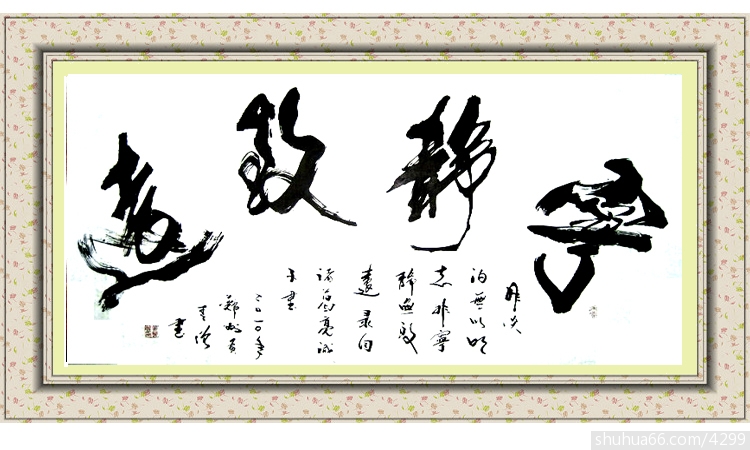 寧静致遠
非淡
泊無以明
志非寧
静無致
遠录自
諸葛亮誡
子書
二〇一〇年
鄭州
書
shuhua66.com/4299